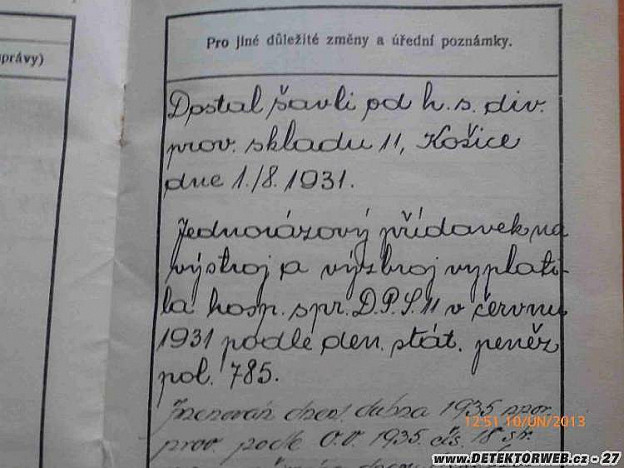 právy)
Pro jiné důležité změny a úřední poznámky.
Dostal šavli od h. s. div.
prov. skladu 11, Košice
dne 1./8. 1931.
Jednorázový přídavek na
výstroj a výzbroj vyplati-
la hosp. spr. D.P.S. 11 v červnu
1931 podle den. stát. peněz
pol. 785.
Jmenován dnem dubna 1935 npor.
prov. podle O.V. 1935, čís. 18 str.
12:51 10/JUN/2013
WWW.DETEKTORWEB.cz - 27